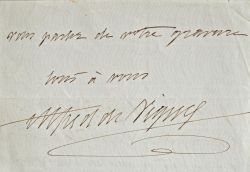 vous parler de votre gravure
tout à vous
Alfred de Vigny